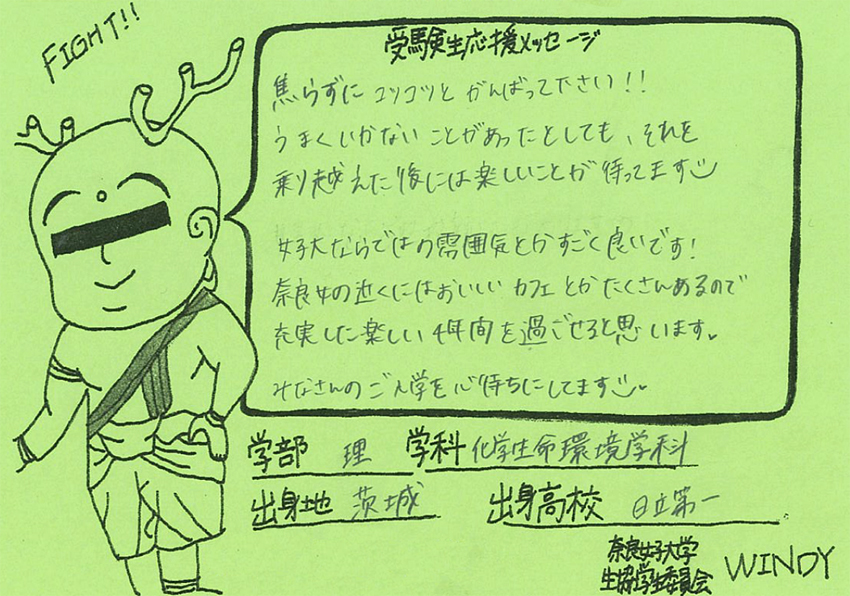 FIGHT!!
受験生応援メッセージ
焦らずに コツコツと がんばって下さい!!
うまくいかない ことがあったとしても、それを
乗り越えた後には楽しいことが 待ってます
女子大ならではの雰囲気とかすごく良いです!
奈良女の近くにはおいしい カフェとか たくさんあるので
充実した楽しい 4年間を過ごせると思います。
みなさんの ご入学を心待ちにしてます。
学部 理 学科 化学生命環境学科
出身地 茨城 出身高校 日立第一
奈良女子大学
生協学生委員会 WINDY